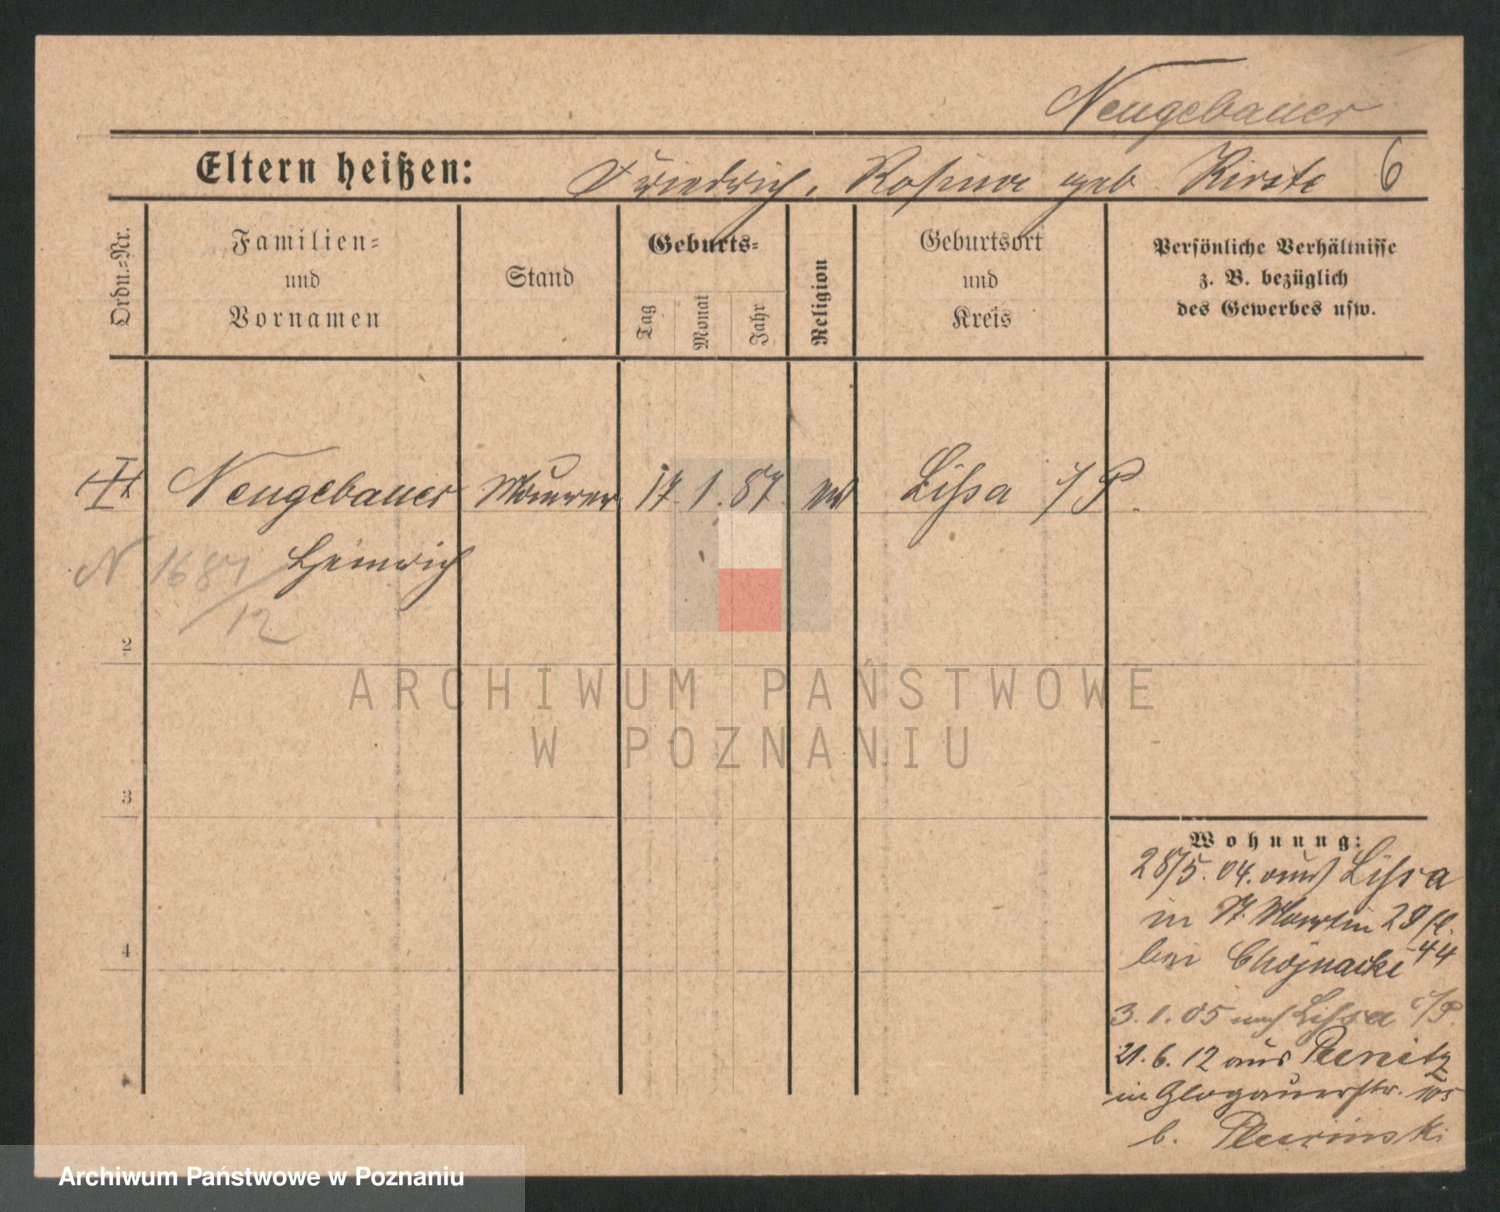 Neugebauer
Eltern heißen: Friedrich, Rosina geb Kirste 6
Ordn.=Nr.
Familien=
und
Vornamen
Stand
Geburts=
Tag
Monat
Jahr
Religion
Geburtsort
und
Kreis
Persönliche Verhältnisse
z. B. bezüglich
des Gewerbes usw.
Neugebauer Maurer 17. 1. 87. Lissa i/P.
Heinrich
N 1687/12
2
3
4
Wohnung:
28/5. 04. aus Lissa
in St. Martin 29
bei Chojnacki -44
3.1.05 nach Lissa i/P.
21.6.12 aus
in Glogauerstr.
b.
ARCHIWUM PAŃSTWOWE
W POZNANIU
Archiwum Państwowe w Poznaniu